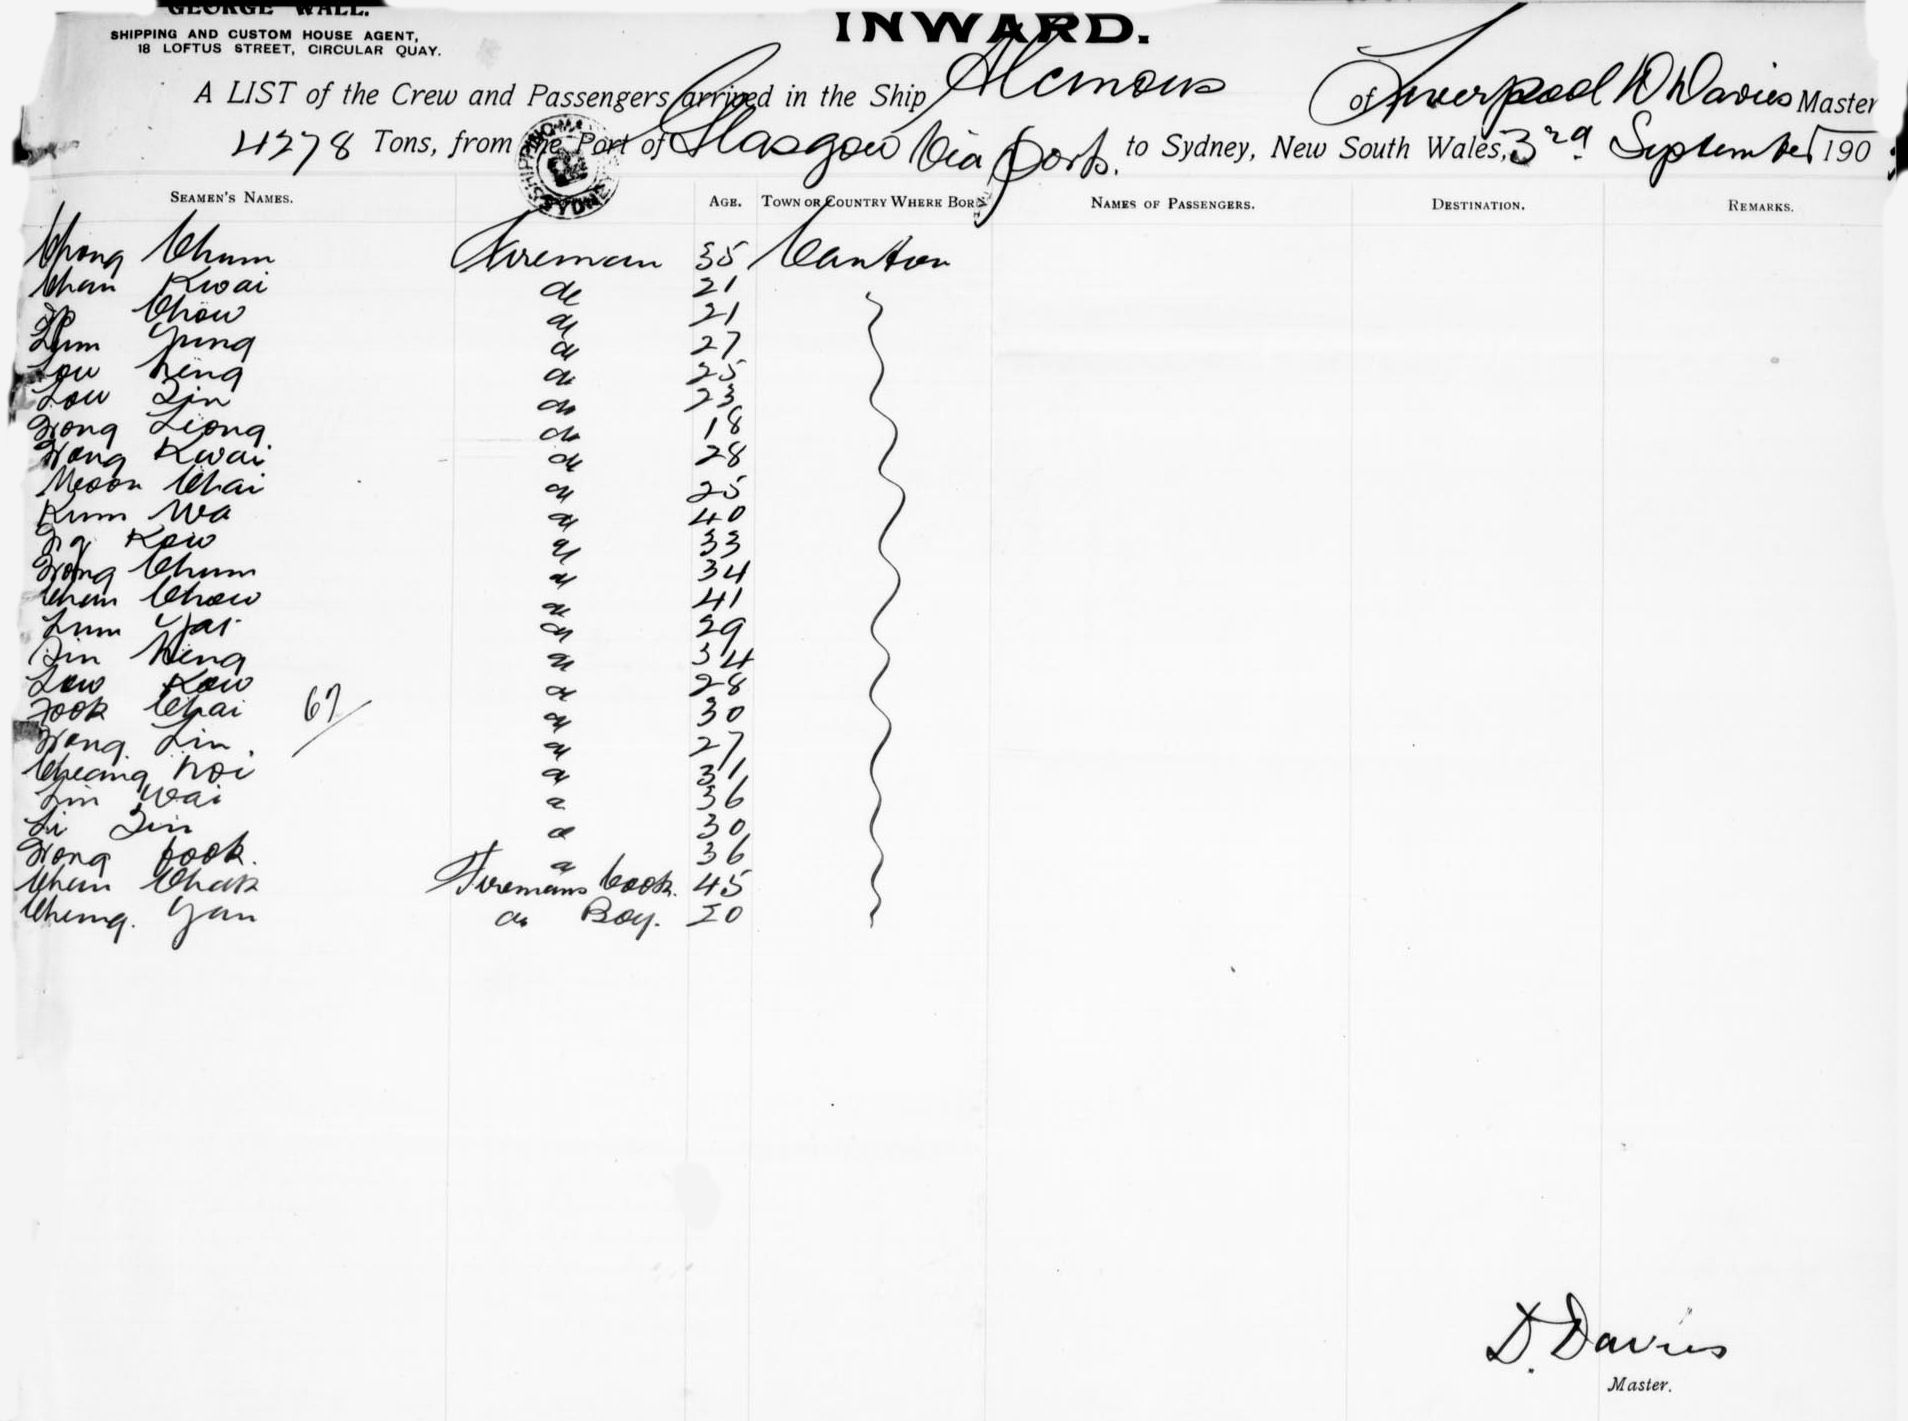 GEORGE WALL.
SHIPPING AND CUSTOM HOUSE AGENT,
18 LOFTUS STREET, CIRCULAR QUAY.
INWARD.
A LIST of the Crew and Passengers arrived in the Ship Alcinous of Liverpool D Davies Master
4278 Tons, from the Port of Glasgow Via Ports. to Sydney, New South Wales, 3rd September 190
SEAMEN'S NAMES. AGE. TOWN OR COUNTRY WHERE BORN NAMES OF PASSENGERS. DESTINATION. REMARKS.
Chong Chum Fireman 35 Canton
Chan Kwai do 21
Chow do 21
Lum Yung do 27
Low Neng do 25
Low Tin do 23
Wong Leong do 18
Wong Kwai do 28
Moon Chai do 25
Kum Wa do 40
Kow do 33
Wong Chum do 34
Chan Chow do 41
Lum Yat do 29
Tin Neng do 34
Low Kow do 28
Fook Chai 67/ do 30
Wong Lin do 27
Cheang Noi do 31
Lin Wai do 36
Li Tin do 30
Wong Fook. do 36
Chan Chak Firemans Cook. 45
Cheung. Yan do Boy. 20
D. Davies
Master.